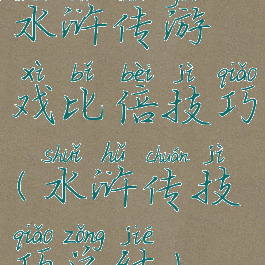 水浒传游
xì bǐ bèi jì qiǎo
戏比倍技巧
shuǐ hǔ chuán jì
(水浒传技
qiǎo zǒng jié
巧总结)